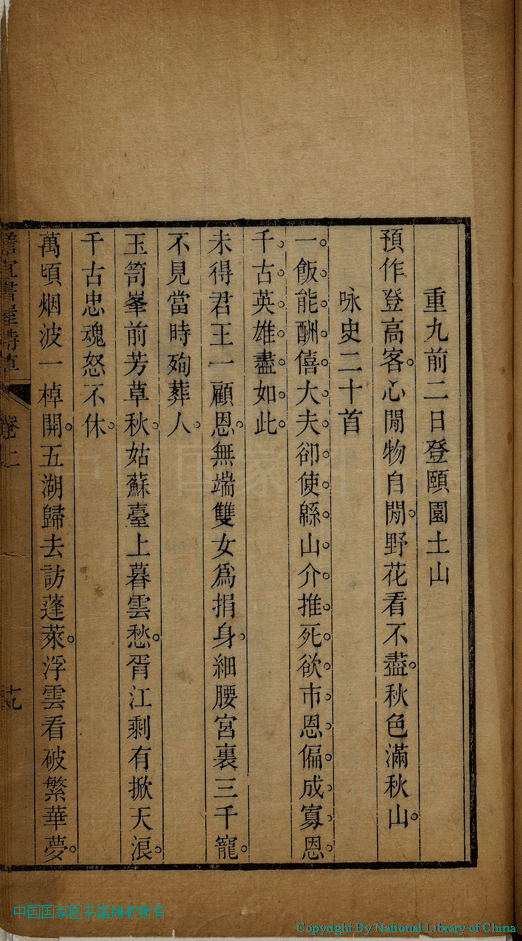 重九前二日登頤園土山
預作登高客。心閒物自閒。野花看不盡。秋色滿秋山。
咏史二十首
一飯能酬僖大夫。卻使緜山介推死。欲市恩偏成寡恩。
千古英雄盡如此。
未得君王一顧恩。無端雙女為捐身。細腰宮裏三千寵。
不見當時殉葬人。
玉笥峯前芳草秋。姑蘇臺上暮雲愁。胥江剩有掀天浪。
千古忠魂怒不休。
萬頃烟波一棹開。五湖歸去訪蓬萊。浮雲看破繁華夢。
書屋詩草 卷上 十九
Copyright By National Library of China